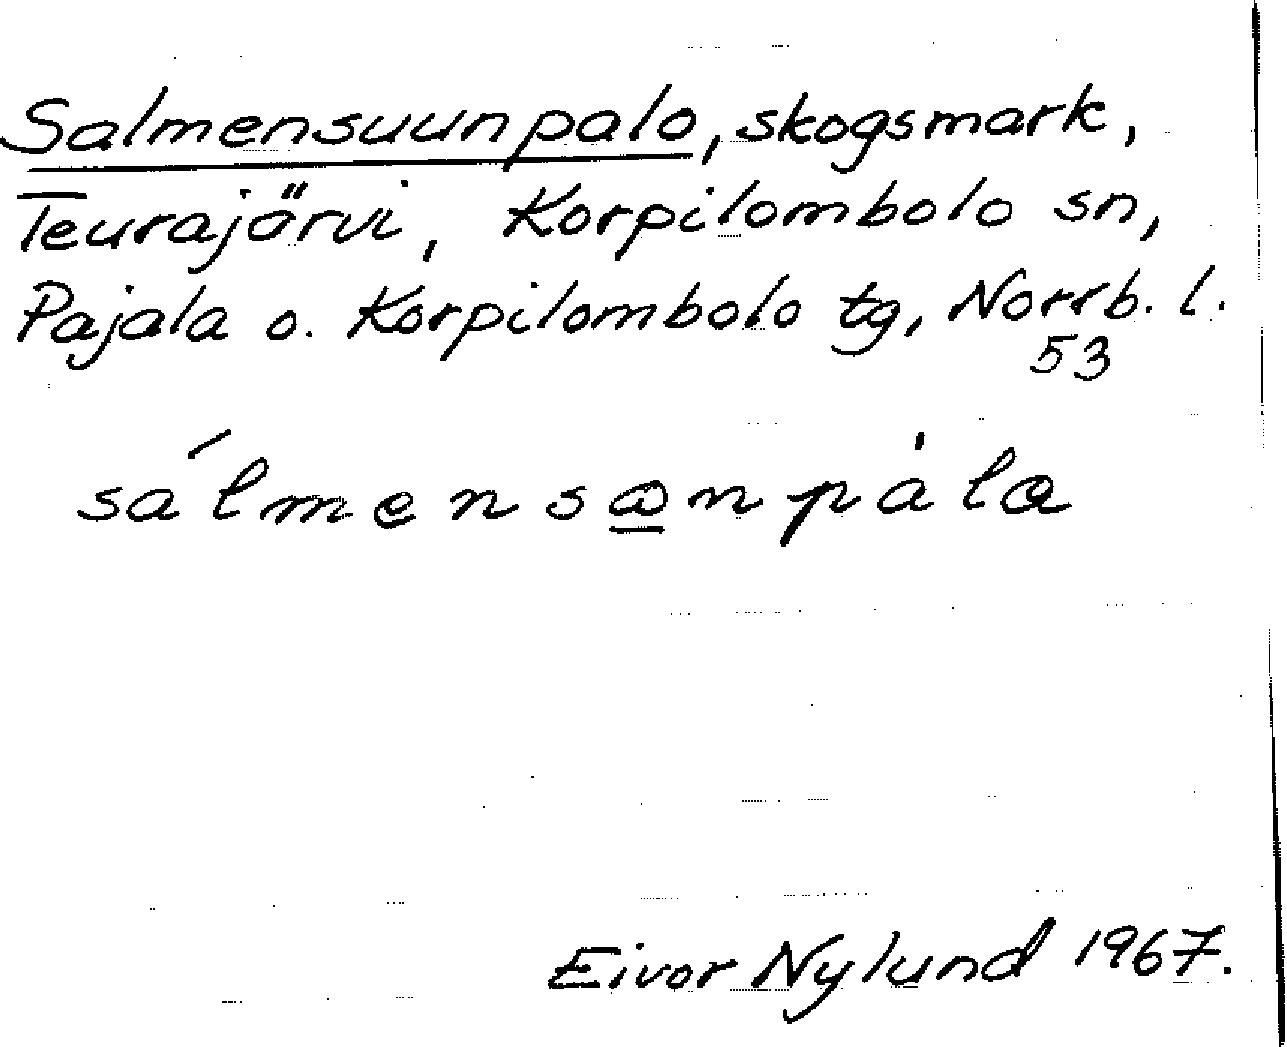 Salmensuunpalo, skogsmark,
Teurajärvi, Korpilombolo sn,
Pajala o. Korpilombolo tg, Norrb. l.
53
Eivor Nylund 1967.